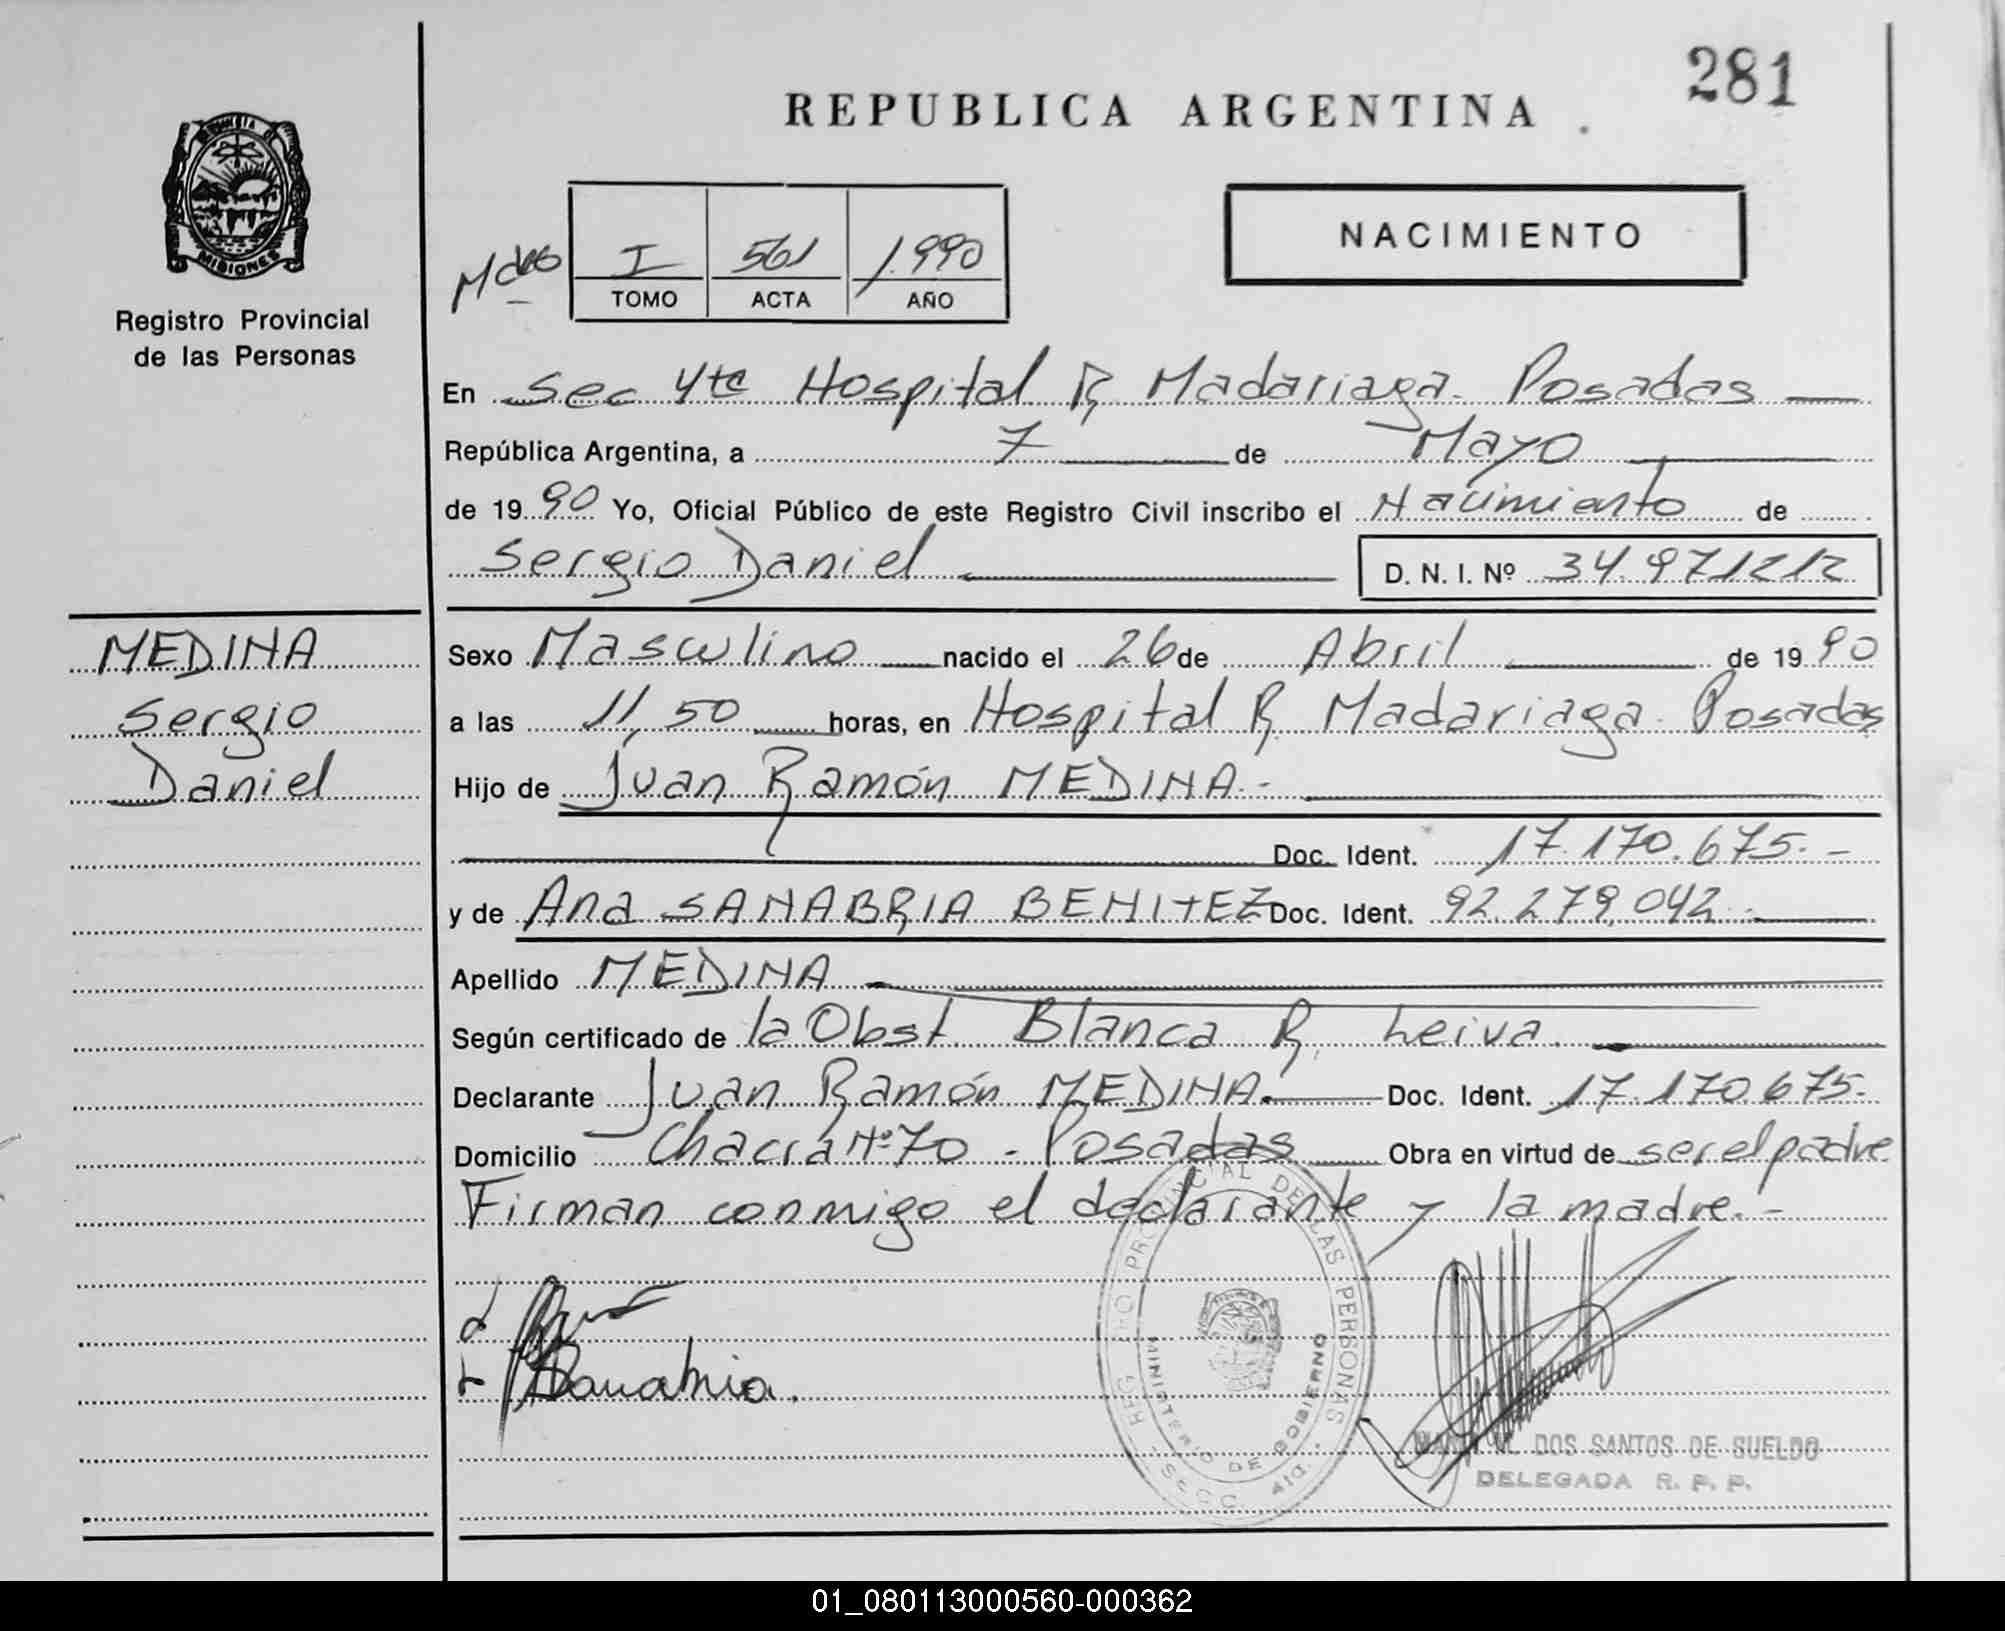 281
REPUBLICA ARGENTINA
PROVINCIA DE
MISIONES
Registro Provincial
de las Personas
NACIMIENTO
I 561 1.990
TOMO ACTA AÑO
En Sec 4ta Hospital R. Madariaga. Posadas
República Argentina, a 7 de Mayo
de 1990 Yo, Oficial Público de este Registro Civil inscribo el Nacimiento de
Sergio Daniel D. N. I. Nº 34.971212
MEDINA
Sergio
Daniel
Sexo Masculino nacido el 26 de Abril de 1990
a las 11,50 horas, en Hospital R. Madariaga. Posadas
Hijo de Juan Ramón MEDINA.-
Doc. Ident. 17.170.675.-
y de Ana SANABRIA BENITEZ Doc. Ident. 92.279.042.-
Apellido MEDINA
Según certificado de la Obst. Blanca R. Leiva.
Declarante Juan Ramón MEDINA. Doc. Ident. 17.170.675.-
Domicilio Chacra Nº 70 - Posadas Obra en virtud de ser el padre
Firman conmigo el declarante y la madre.-
REGISTRO PROVINCIAL DE LAS PERSONAS
MINISTERIO DE GOBIERNO
SECC. 4ta.
Sanabria.
DOS SANTOS DE SUELDO
DELEGADA R. P. P.
01_080113000560-000362